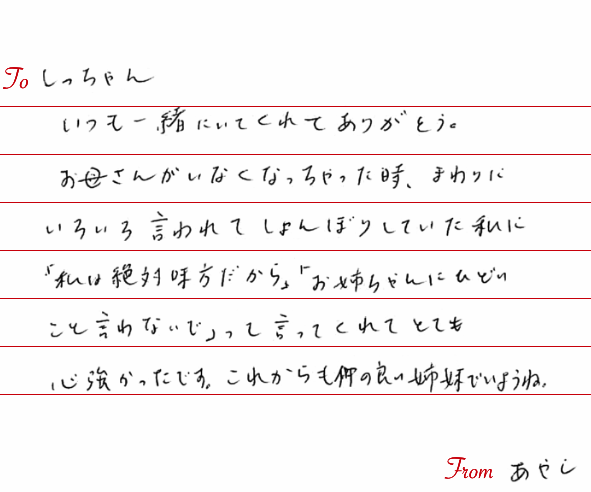 To しっちゃん
いつも一緒にいてくれてありがとう。
お母さんがいなくなっちゃった時、まわりに
いろいろ言われてしょんぼりしていた私に
「私は絶対味方だから」「お姉ちゃんにひどい
こと言わないで」って言ってくれてとても
心強かったです。これからも仲の良い姉妹でいようね。
From あやし